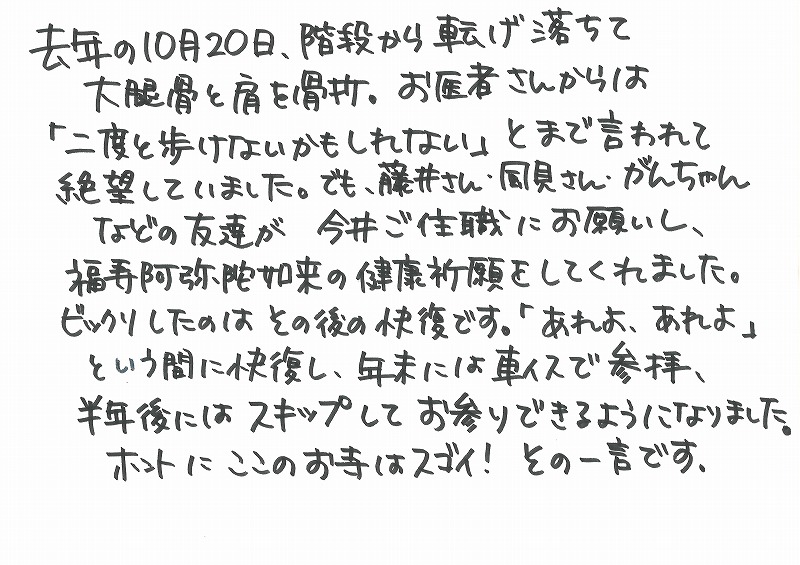 去年の10月20日、階段から転げ落ちて
大腿骨と肩を骨折。お医者さんからは
「二度と歩けないかもしれない」とまで言われて
絶望していました。でも、藤井さん・岡見さん・がんちゃん
などの友達が 今井ご住職にお願いし、
福寿阿弥陀如来の健康祈願をしてくれました。
ビックリしたのは その後の快復です。「あれよ、あれよ」
という間に快復し、年末には車イスで参拝、
半年後には スキップして お参りできるようになりました。
ホントにここのお寺はスゴイ! その一言です.